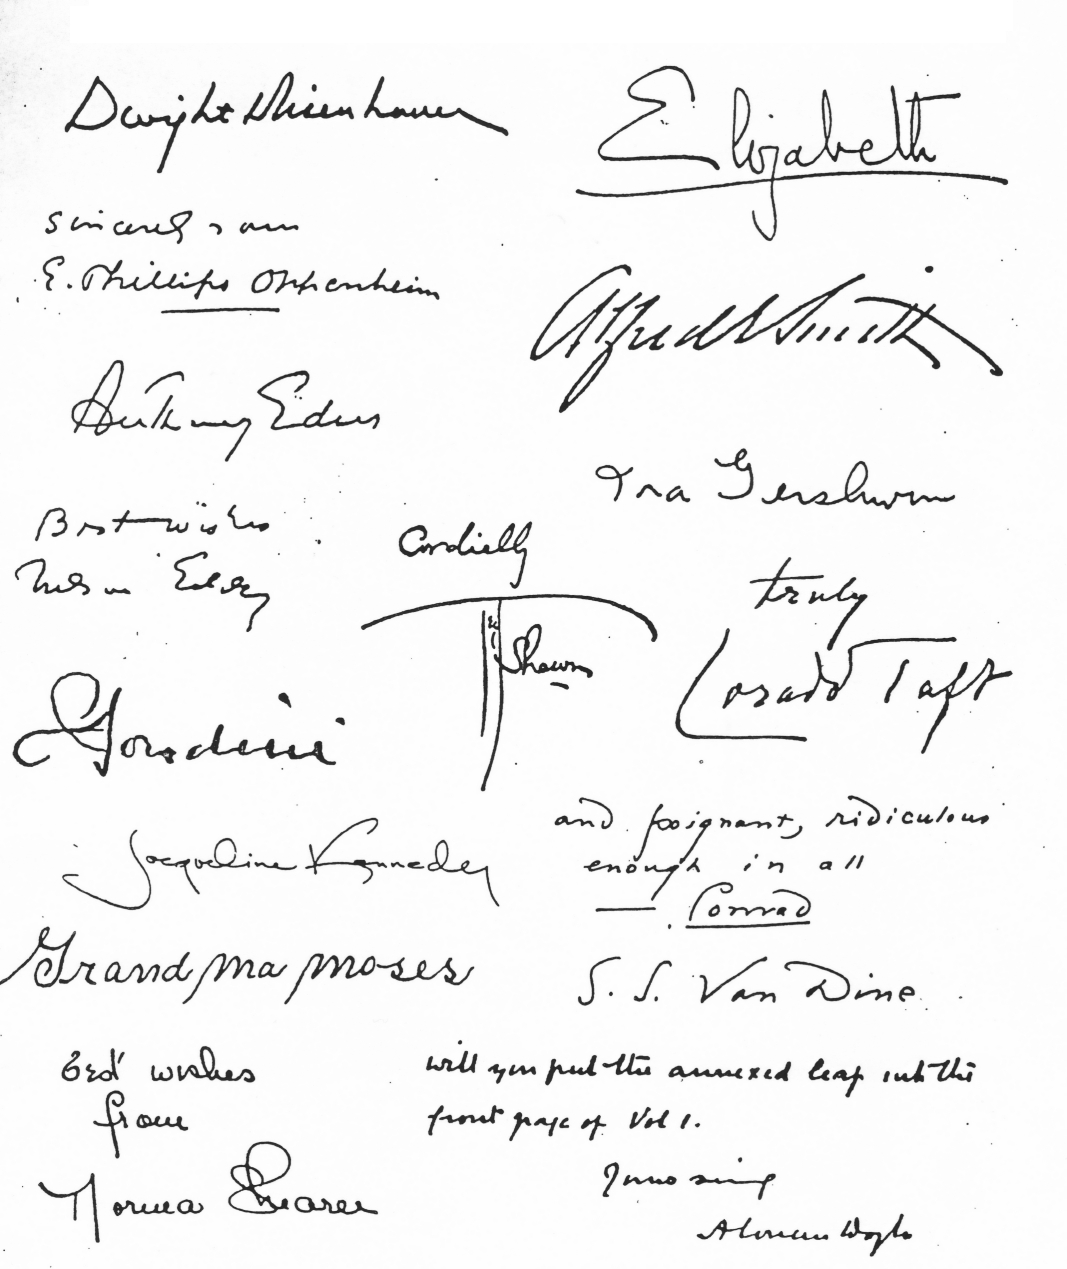 Dwight D Eisenhower
Elizabeth
Sincerely yours
E. Phillips Oppenheim
Alfred E Smith
Anthony Eden
Ira Gershwin
Best wishes
Nelson Eddy
Cordially
Ted Shawn
truly
Lorado Taft
Houdini
Jacqueline Kennedy
and poignant, ridiculous
enough in all
— Conrad
Grandma Moses
S. S. Van Dine
Best wishes
from
Norma Shearer
will you put the annexed leaf into the
front page of Vol 1.
A Conan Doyle